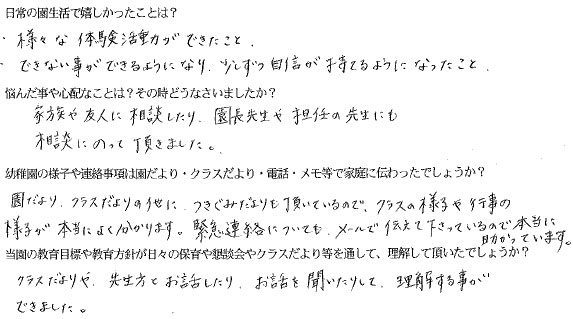 日常の園生活で嬉しかったことは？
・様々な体験活動ができたこと.
・できない事ができるようになり、少しずつ自信が持てるようになったこと.
悩んだ事や心配なことは？その時どうなさいましたか？
家族や友人に相談したり、園長先生や担任の先生にも
相談にのって頂きました。
幼稚園の様子や連絡事項は園だより・クラスだより・電話・メモ等で家庭に伝わったでしょうか？
園だより、クラスだよりの他に、つきぐみだよりも頂いているので、クラスの様子や行事の
様子が本当によく分かります。緊急連絡についても、メールで伝えて下さっているので本当に
助かっています。
当園の教育目標や教育方針が日々の保育や懇談会やクラスだより等を通して、理解して頂いたでしょうか？
クラスだよりや、先生方とお話したり、お話を聞いたりして、理解する事が
できました。